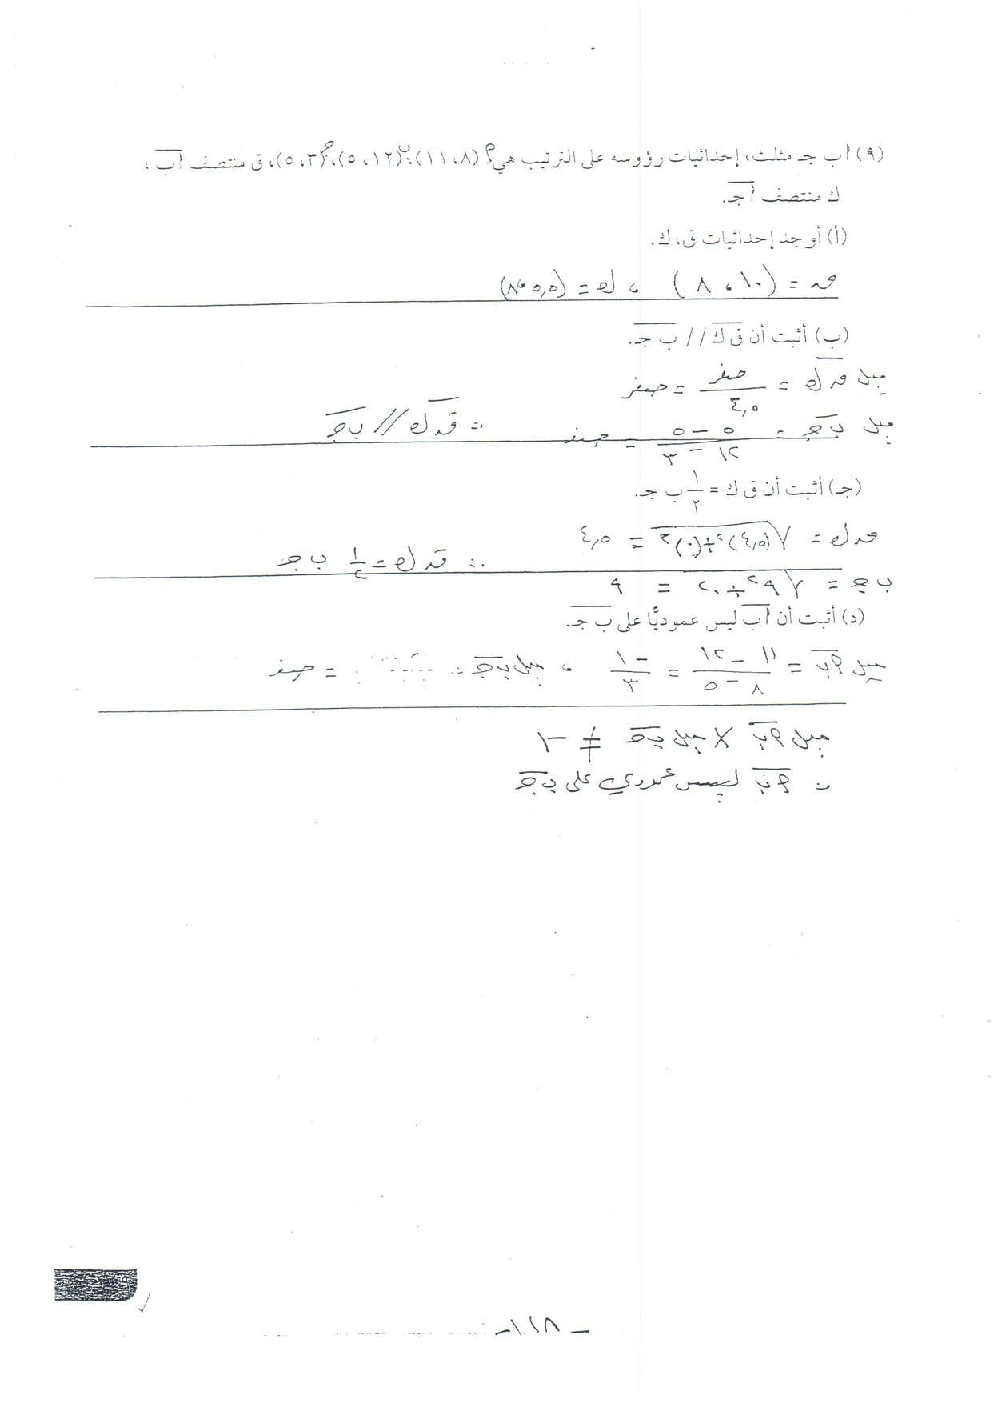 (٩) أ ب جـ مثلث، إحداثيات رؤوسه على الترتيب هي: (٨، ١١)، (١٢، ٥)، (٣، ٥)، ق منتصف أب،
ك منتصف أ جـ.
(أ) أوجد إحداثيات ق، ك.
ق = (١٠، ٨) ، ك = (٥,٥، ٨)
(ب) أثبت أن ق ك // ب جـ.
ميل ق ك = صفر/٤,٥ = صفر
ميل ب جـ = ٥ - ٥ / ١٢ - ٣ = صفر ∴ ق ك // ب جـ
(جـ) أثبت أن ق ك = ١/٢ ب جـ.
ق ك = √(٤,٥)٢ + (٠)٢ = ٤,٥
∴ ق ك = ١/٢ ب جـ
ب جـ = √٩٢ + ٠٢ = ٩
(د) أثبت أن أب ليس عموديًّا على ب جـ.
ميل أب = ١١ - ١٢ / ٨ - ٥ = -١/٣ ، ميل ب جـ = صفر
ميل أب × ميل ب جـ ≠ -١
∴ أب ليس عمودي على ب جـ
- ١١٨ -